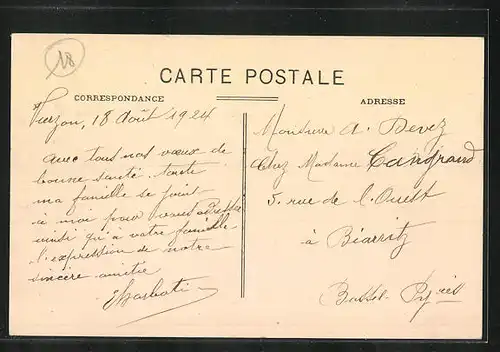 18
CARTE POSTALE
CORRESPONDANCE
ADRESSE
Vierzon, 18 Août 1924
avec tous nos vœux de
bonne santé. toute
ma famille se joint
à moi pour vous adresser
ainsi qu'à votre famille
l'expression de notre
sincère amitié
Monsieur A. Devez
Chez Madame Candrand
5 rue de l'Ouest
à Biarritz
Basses-Pyées